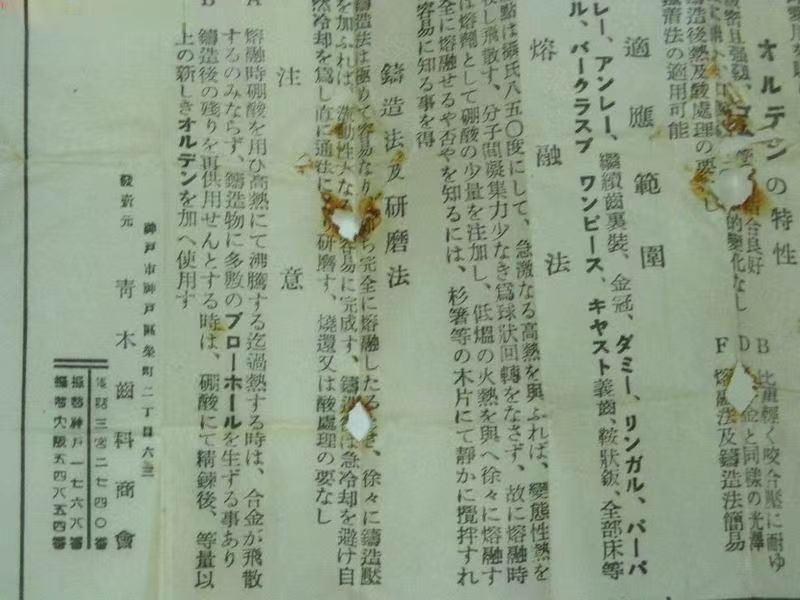 オルデンの特性
B 比重輕く咬合壓に耐ゆ
金と同樣の光澤
的變化なし
F 熔融法及鑄造法簡易
鑄造後熱及酸處理の要なし
法の適用可能
適應範圍
レー、アンレー、繼續齒裏裝、金冠、ダミー、リンガル、バーパ
ル、バークラスプ ワンピース、キヤスト義齒、鞍狀鈑、全部床等
熔融法
點は攝氏八五〇度にして、急激なる高熱を與ふれば、變態性熱を
し飛散す、分子間凝集力少なき爲球狀回轉をなさず、故に熔融時
は熔劑として硼酸の少量を注加し、低溫の火熱を與へ徐々に熔融す
全に熔融せるや否やを知るには、杉箸等の木片にて靜かに攪拌すれ
容易に知る事を得
鑄造法及研磨法
鑄造法は極めて容易なり 完全に熔融したる 徐々に鑄造壓
を加ふれば、流動性大なる 容易に完成す、鑄造後は急冷却を避け自
然冷却を爲し直に通法に 研磨す、燒還又は酸處理の要なし
注意
A 熔融時硼酸を用ひ高熱にて沸騰する迄過熱する時は、合金が飛散
するのみならず、鑄造物に多數のブローホールを生ずる事あり
B 鑄造後の殘りを再供用せんとする時は、硼酸にて精鍊後、等量以
上の新しきオルデンを加へ使用す
神戸市神戸區榮町二丁目六三
發賣元 靑木齒科商會
電話三宮二七四〇番
振替神戸一七六八番
振替大阪五四八五四番